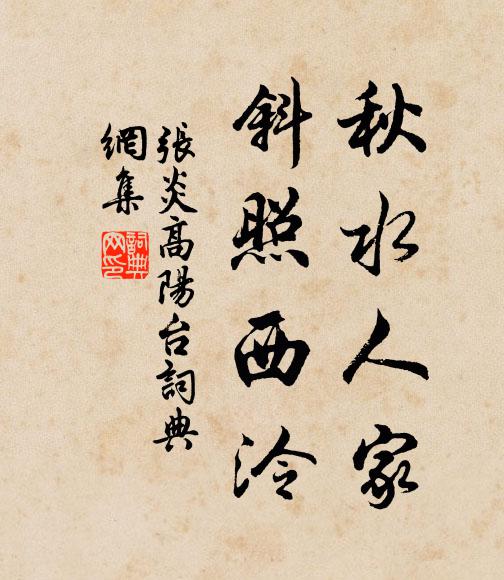 秋水人家
斜照西泠
張炎高陽台詞典
網集
詞典网印